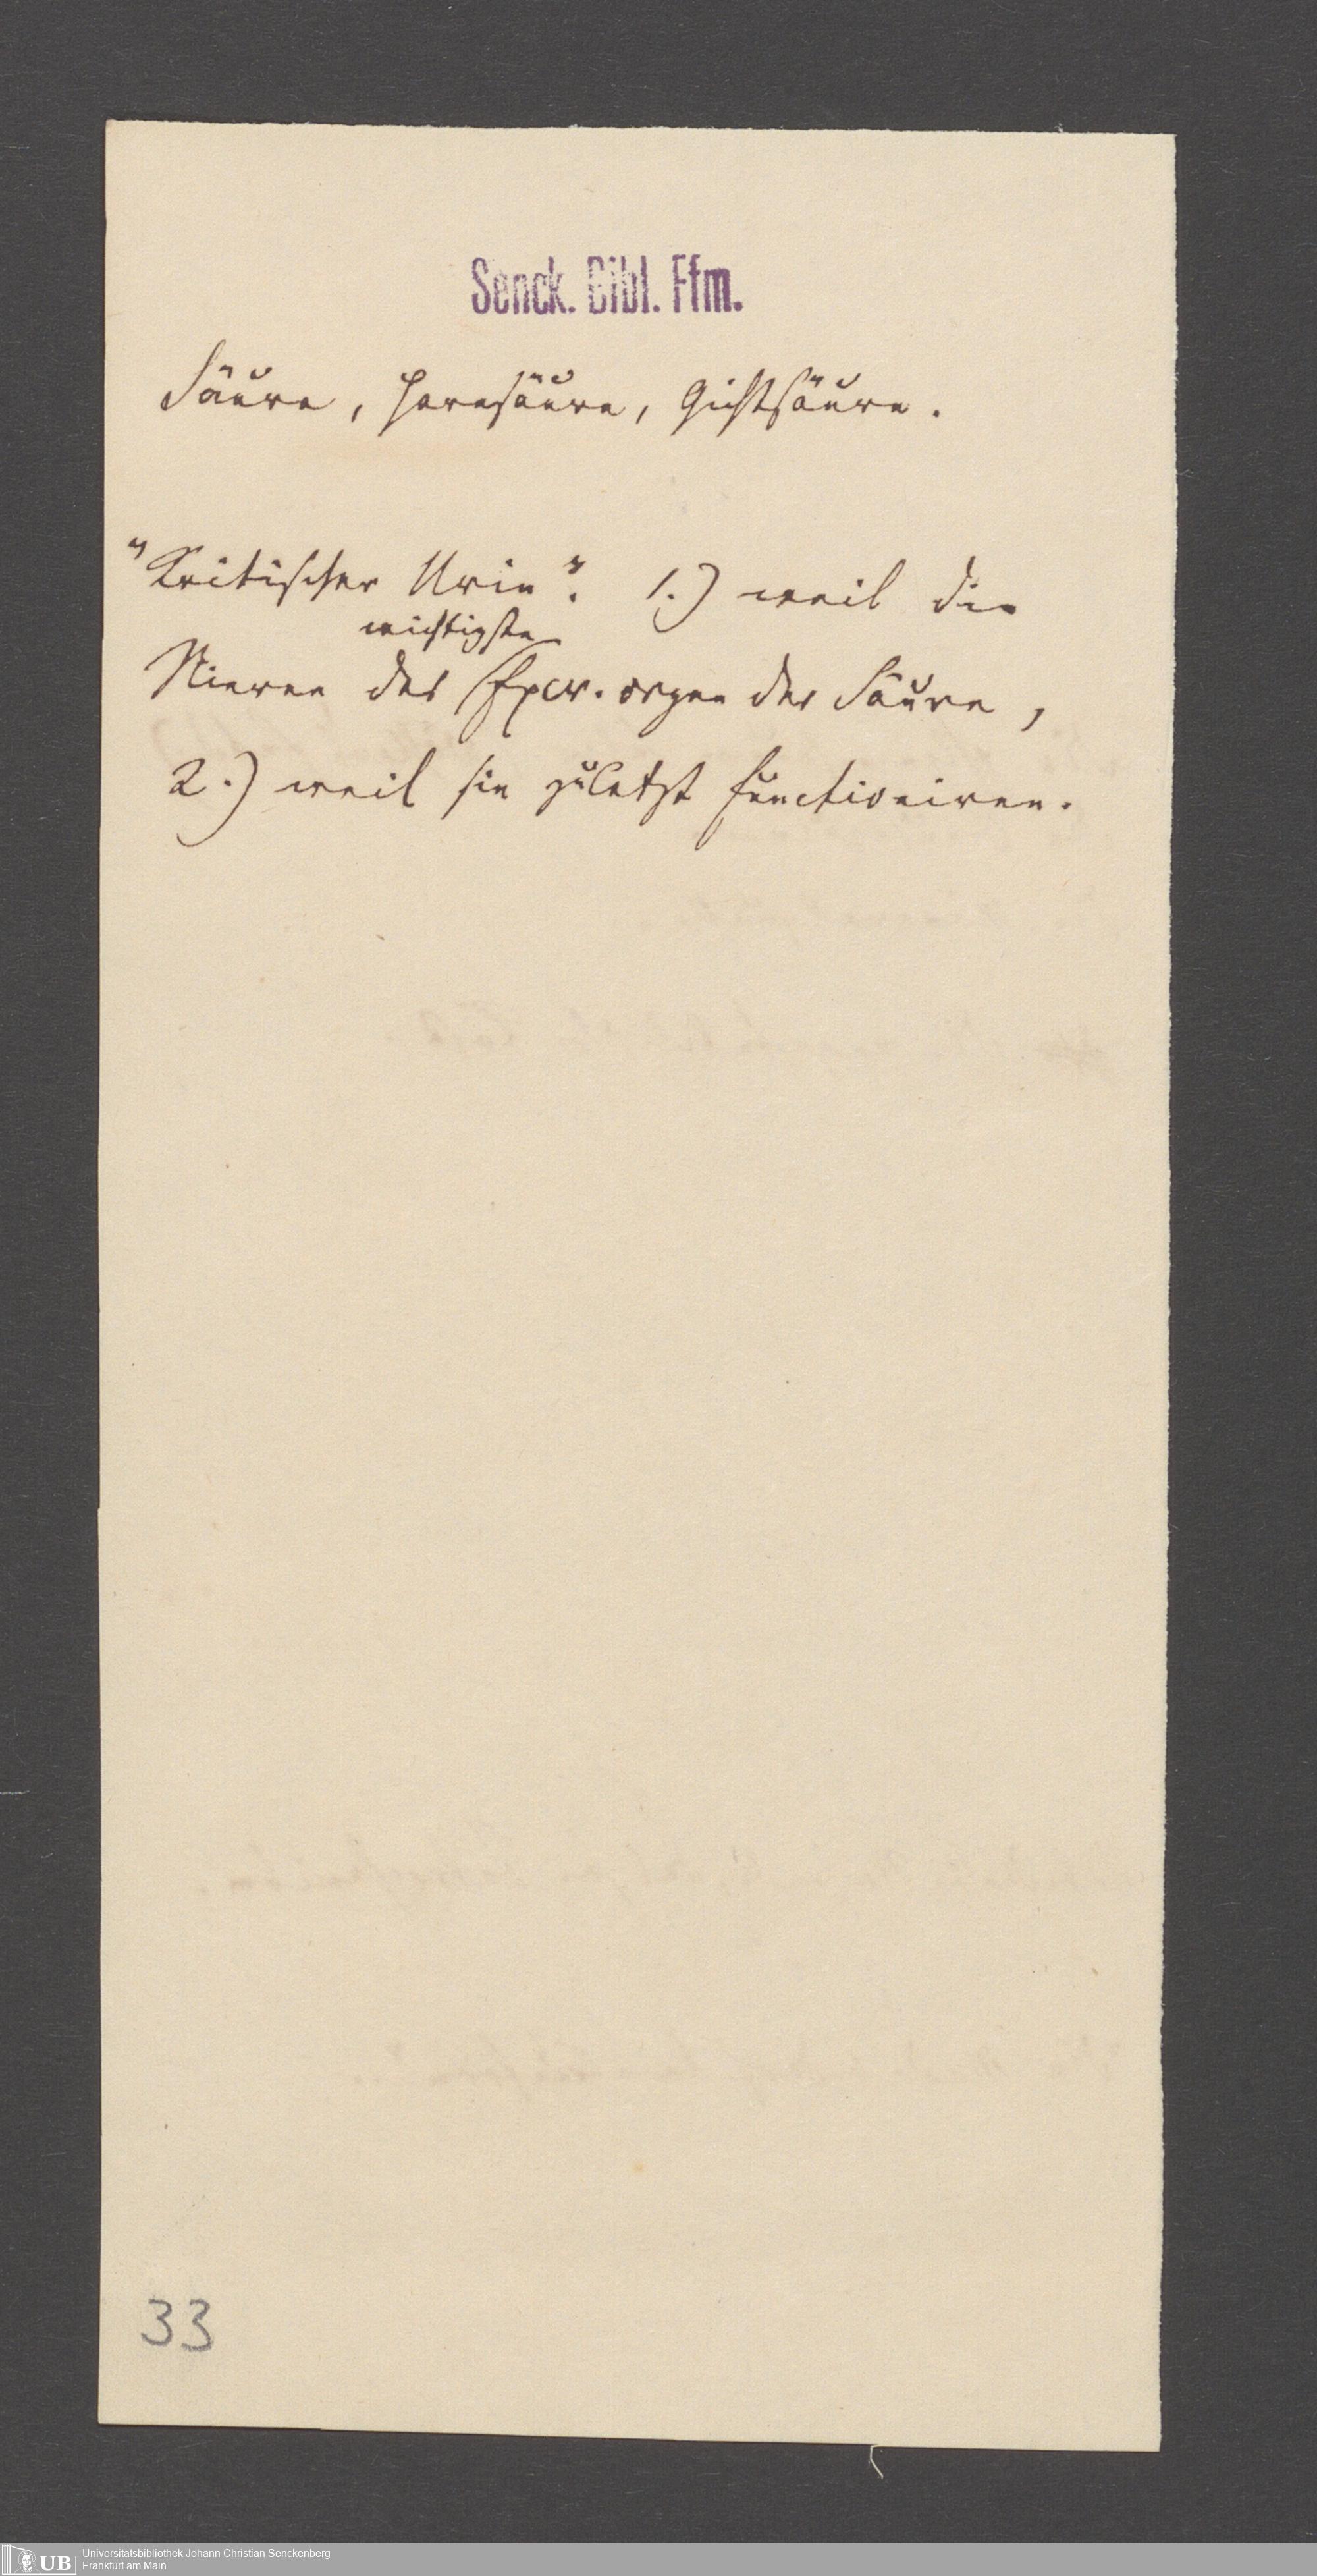 Senck. Bibl. Ffm.
Säure, Harnsäure, Gichtsäure.
"Kritischer Urin": 1.) weil die
wichtigste
Nieren das Excr. organ der Säure,
2.) weil sie zuletzt functioniren.
33
UB Universitätsbibliothek Johann Christian Senckenberg
Frankfurt am Main